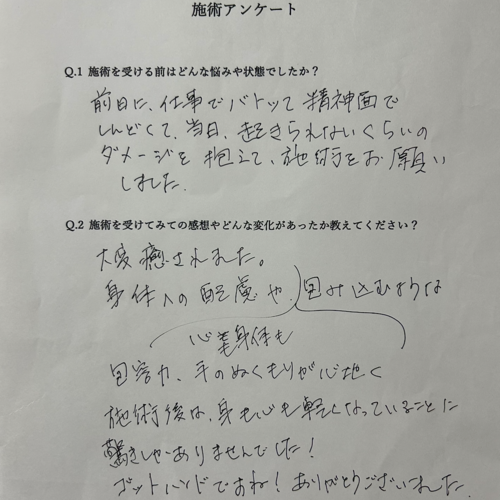 施術アンケート
Q.1 施術を受ける前はどんな悩みや状態でしたか？
前日に、仕事でバトって精神面で
しんどくて、当日、起きられないくらいの
ダメージを抱えて、施術をお願い
しました。
Q.2 施術を受けてみての感想やどんな変化があったか教えてください？
大変癒されました。
身体への配慮や、包み込むような
心身体も
包容力、手のぬくもりが心地く
施術後は、身も心も軽くなっていることに
驚きしかありませんでした！
ゴットハンドですね！ありがとうございました。